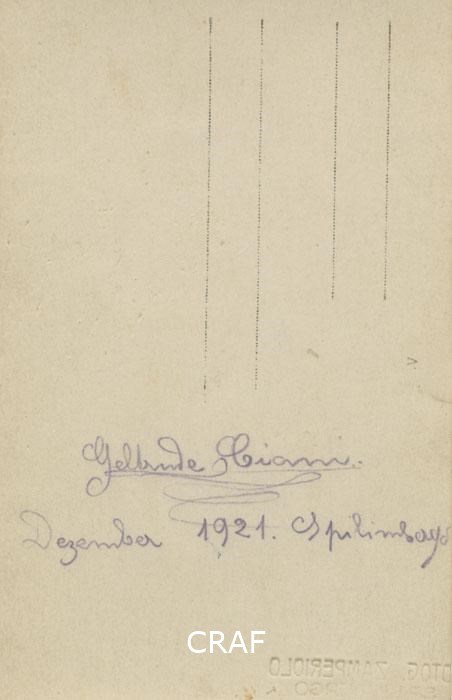 Geltrude
Dezember 1921. Spilimbergo
CRAF
OTOG. ZAMPERIOLO